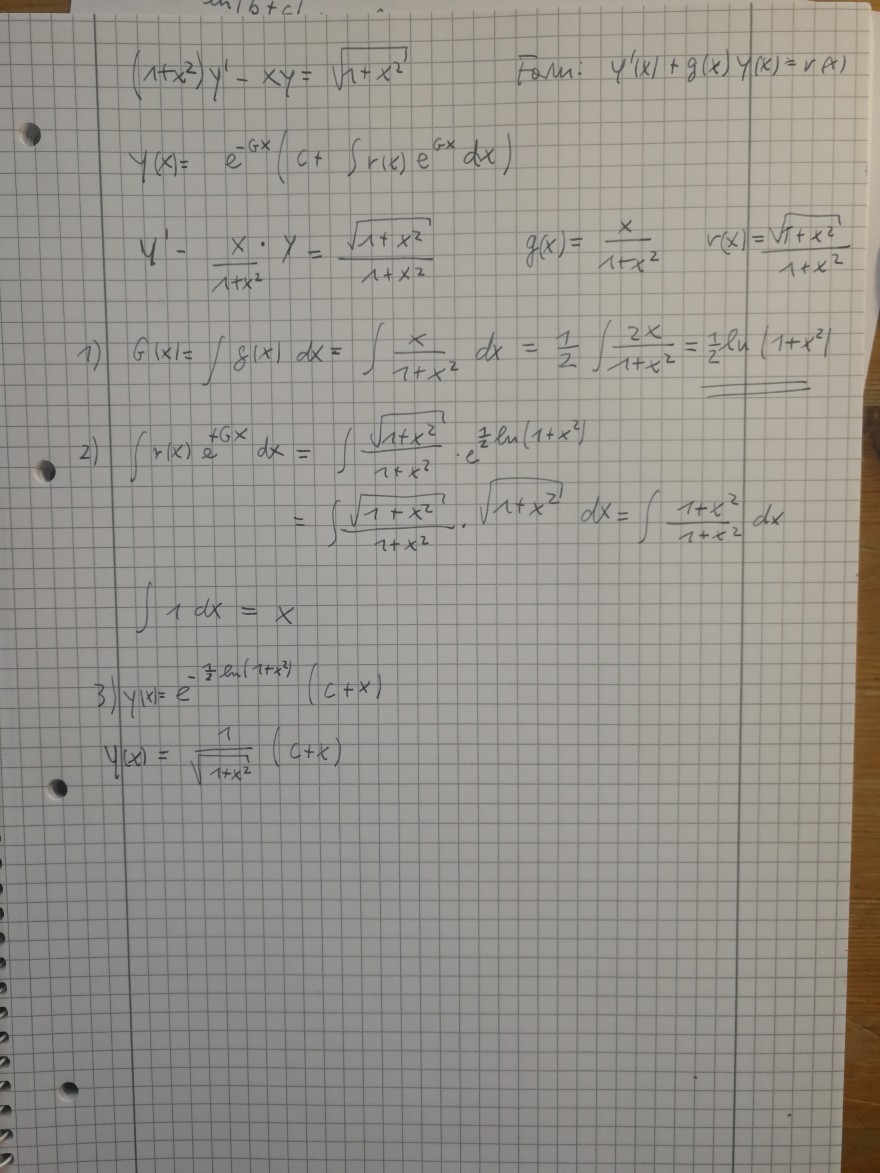 (1+x²)y' - xy = √(1+x²) Form: y'(x) + g(x) y(x) = r(x)
y(x) = e^(-Gx) (c + ∫ r(x) e^(Gx) dx)
y' - x/(1+x²) · y = √(1+x²)/(1+x²) g(x) = x/(1+x²) r(x) = √(1+x²)/(1+x²)
1) G(x) = ∫ g(x) dx = ∫ x/(1+x²) dx = 1/2 ∫ 2x/(1+x²) = 1/2 ln(1+x²)
2) ∫ r(x) e^(+Gx) dx = ∫ √(1+x²)/(1+x²) · e^(1/2 ln(1+x²))
= ∫ √(1+x²)/(1+x²) · √(1+x²) dx = ∫ (1+x²)/(1+x²) dx
∫ 1 dx = x
3) y(x) = e^(-1/2 ln(1+x²)) (c+x)
y(x) = 1/√(1+x²) (c+x)